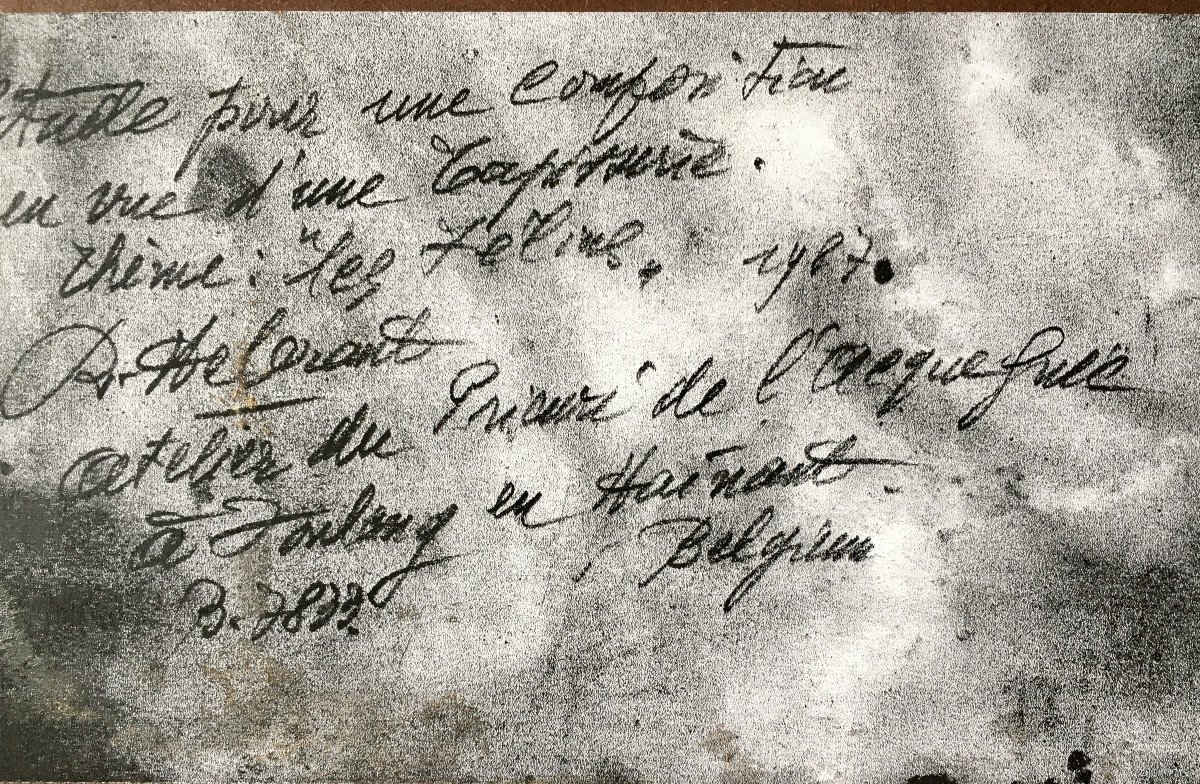 Etude pour une composition
en vue d'une Tapisserie.
thème: "les félins. 1987.
atelier du Prieuré de l'acquegnies
a en Hainaut.
Belgium
B. 7833.